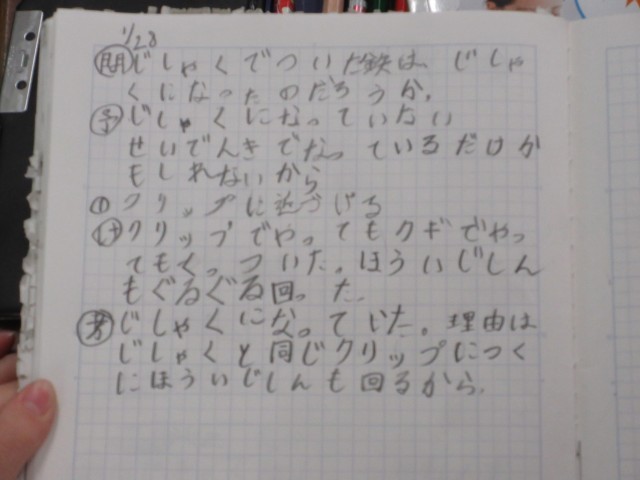 1/28
問 じしゃくでついた鉄は じしゃ
くになったのだろうか。
予 じしゃくになっていない
せいでんきでなっているだけか
もしれないから
① クリップに近づける
け クリップでやってもクギでやっ
てもくっついた。ほういじしん
もぐるぐる回った。
考 じしゃくになっていた。理由は
じしゃくと同じクリップにつく
にほういじしんも回るから。